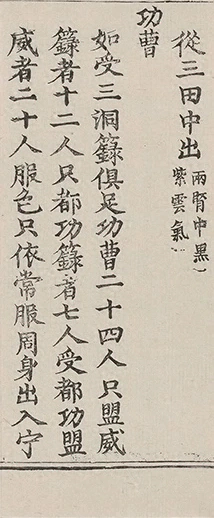 從三田中出兩腎中黑
紫雲氣
功曹
如受三洞籙俱足功曹二十四人只盟威
籙者十二人只都功籙者七人受都功盟
威者二十人服色只依常服周身出入宁